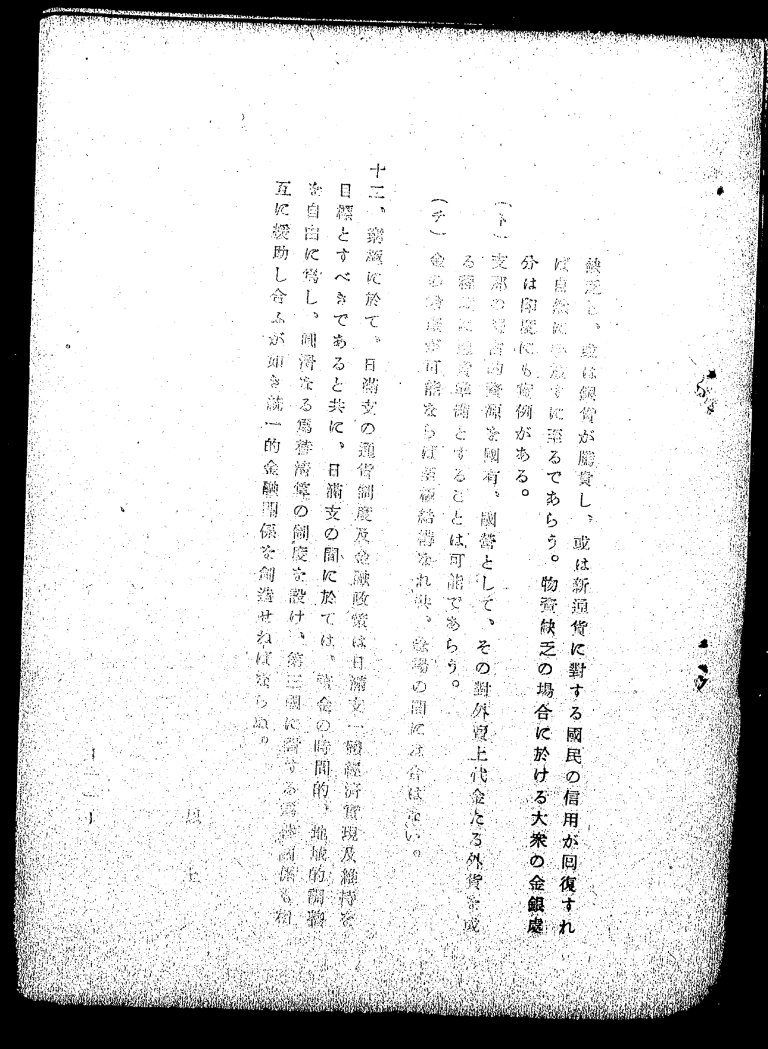 缺乏し、或は銀貨が騰貴し、或は新通貨に對する國民の信用が回復すれ
ば自然に手放すに至るであらう。物資缺乏の場合に於ける大衆の金銀處
分は印度にも實例がある。
(ト) 支那の獨占的資源を國有、國營として、その對外賣上代金たる外貨を或
る程度に通貨準備とすることは可能であらう。
(チ) 金の増産が可能ならば至極結構なれ共、急場の間には合はない。
十二、窮極に於て、日滿支の通貨制度及金融政策は日滿支一體經濟實現及維持を
目標とすべきであると共に、日滿支の間に於ては、資金の時間的、地域的調整
を自由に爲し、圓滑なる爲替淸算の制度を設け、第三國に對する爲替關係も相
互に援助し合ふが如き統一的金融關係を創造せねばならぬ。
以上